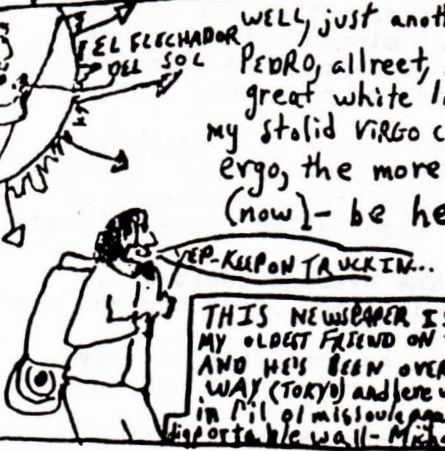 EL FLECHADOR
DEL SOL
WELL, just anoth
PEDRO, allreet,
great white
my stolid VIRGO c
ergo, the more
(now)- be he
YEP-KEEP ON TRUCKIN...
THIS NEWSPAPER IS
MY OLDEST FRIEND ON
AND HE'S BEEN OVER
WAY (TOKYO) and here
in l'il ol missoula
wall-